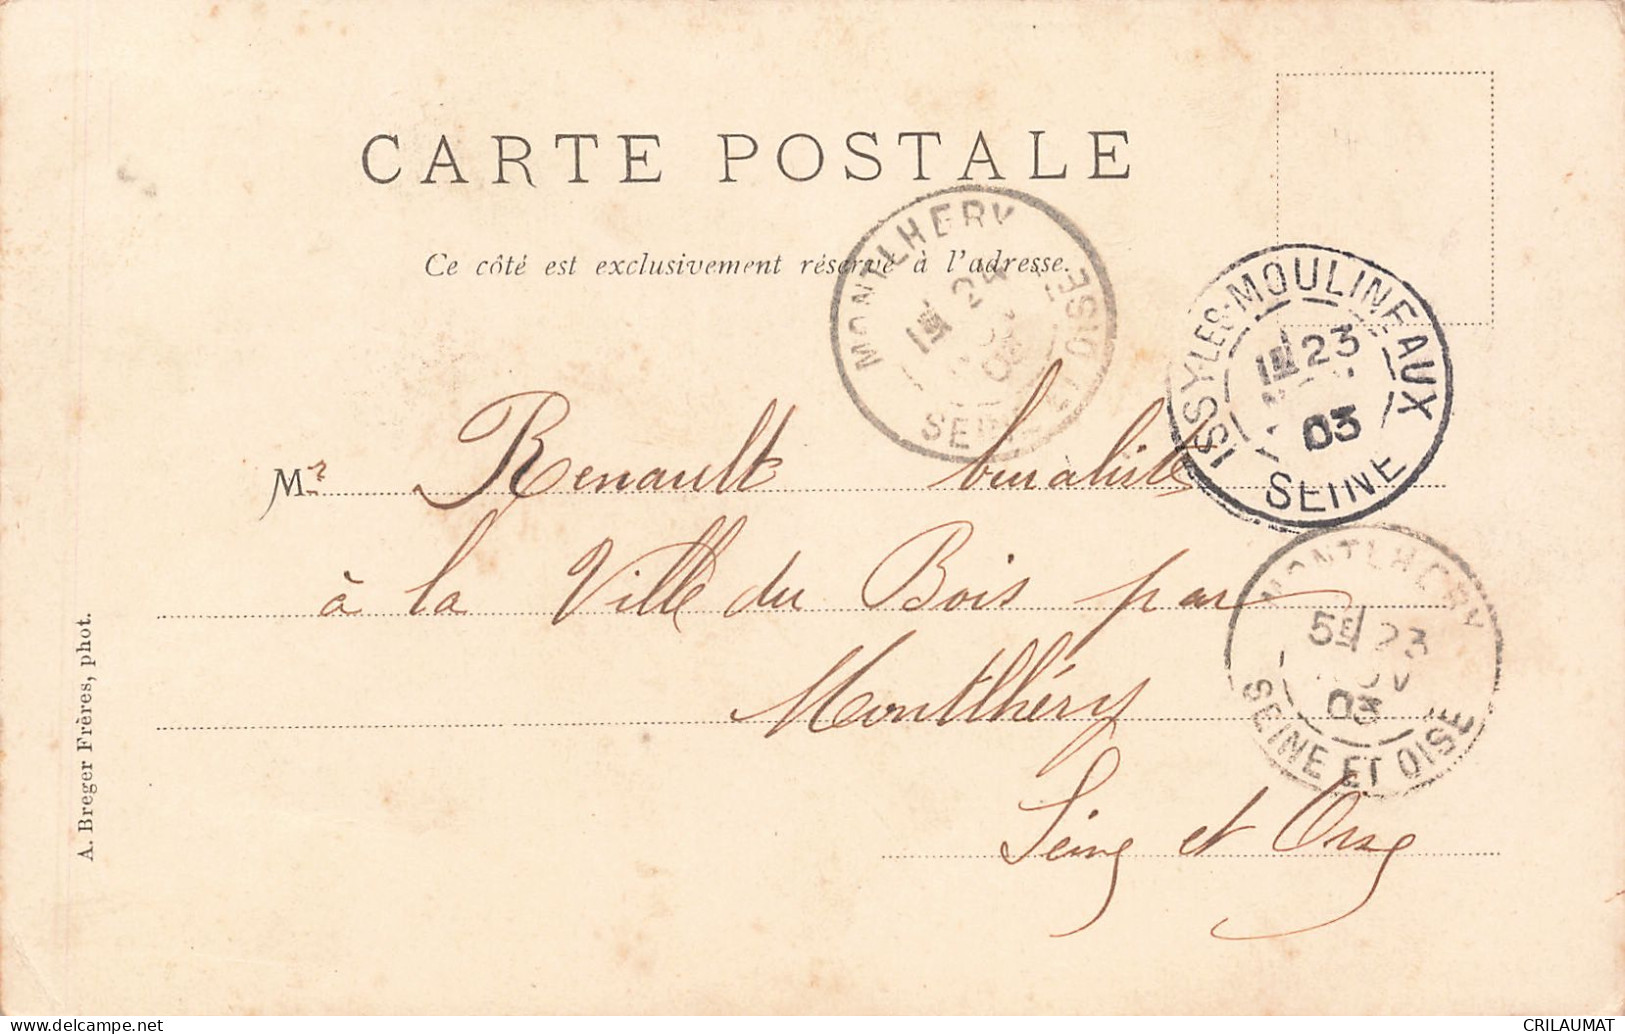 CARTE POSTALE
Ce côté est exclusivement réservé à l'adresse.
MONTLHERY
1E 24
03
SEINE ET OISE
ISSY-LES-MOULINEAUX
1E 23
03
SEINE
Mr Renault buraliste
à la Ville du Bois par
Montlhéry
Seine et Oise
MONTLHERY
5E 23
NOV
03
SEINE ET OISE
A. Breger Frères, phot.
www.delcampe.net
CRILAUMAT